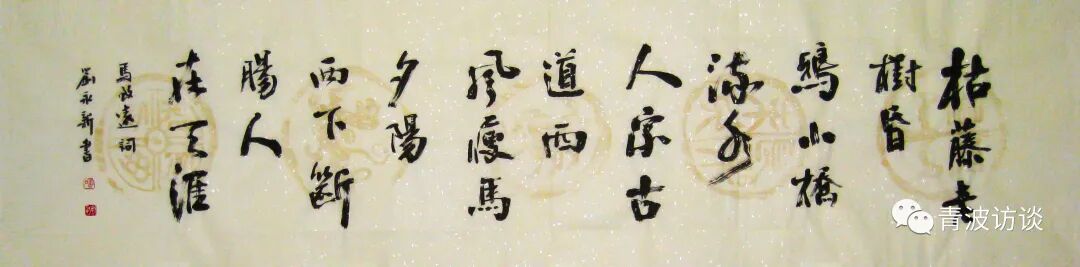 枯藤老
樹昏
鴉小橋
流水
人家古
道西
風瘦馬
夕陽
西下斷
腸人
在天涯
馬致遠詞
劉永新書
青波访谈